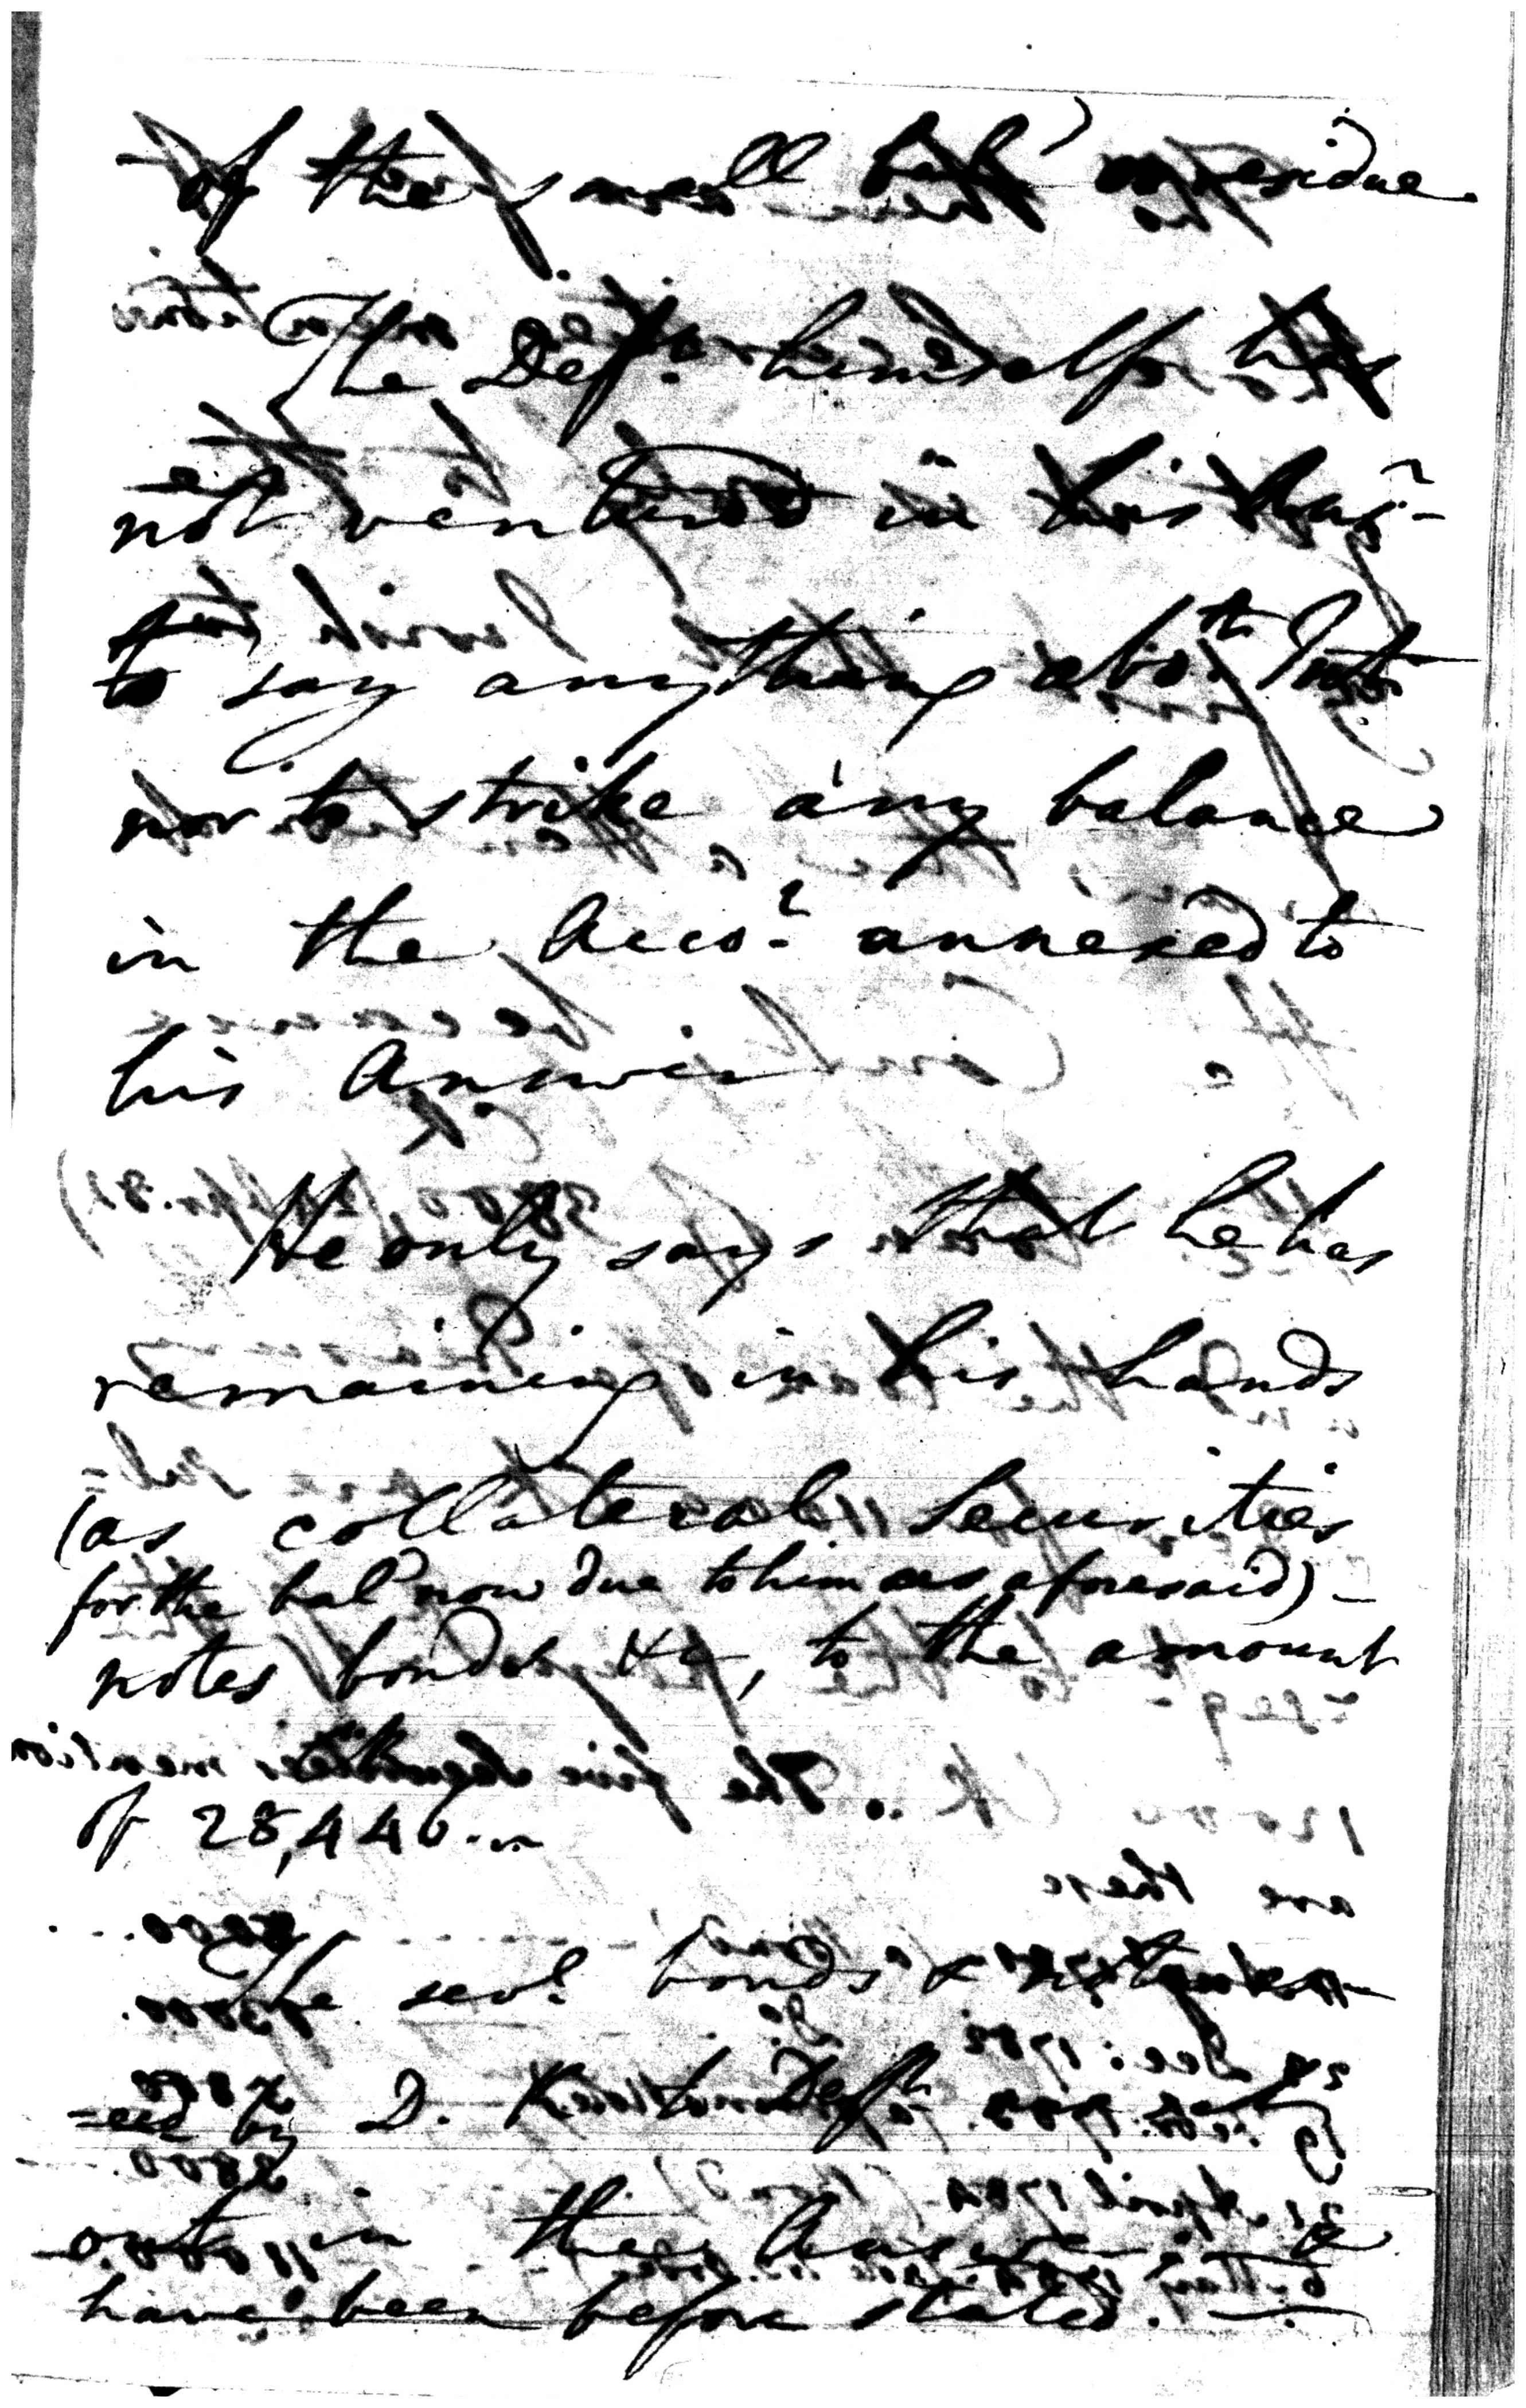 of the small bal' or residue
The Deft. himself has
not ventured in his Ansr.
to say anything abo.t Int.
nor to strike any balance
in the Acco.t annexed to
his Answer
He only says that he has
remaining in his hands
(as collateral Securities
for the bal' now due to him as aforesaid) -
notes bonds &c, to the amount
of 28,440..
The sevl. bonds &
by D. K to Deft.
out in the Answer &
have been before stated. —